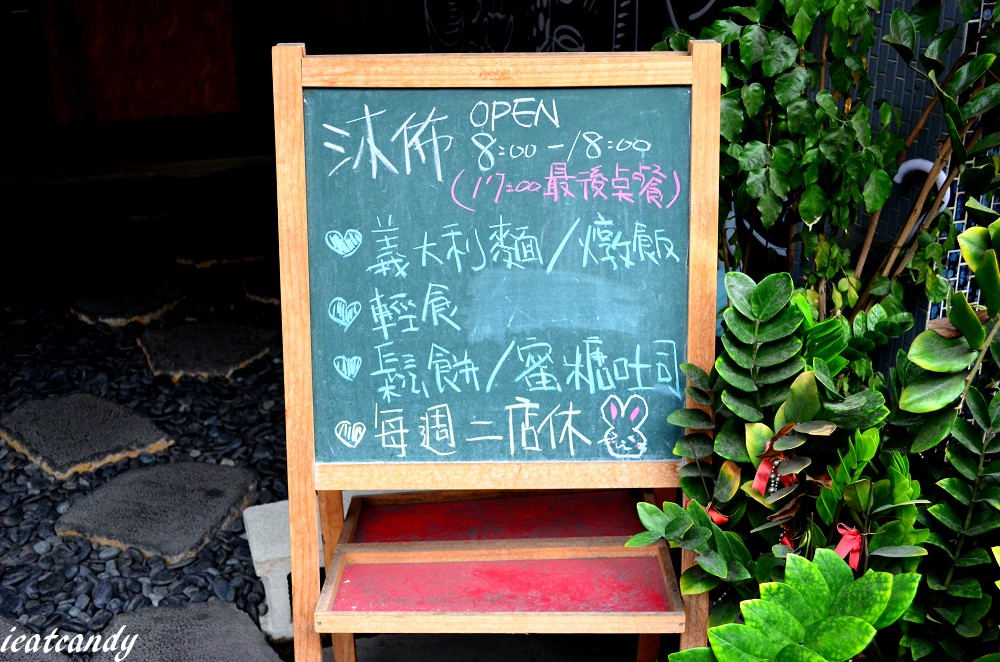 沐佈 OPEN
8:00-18:00
(17:00最後桌餐)
義大利麵/燉飯
輕食
鬆餅/蜜糖吐司
每週二店休
ieatcandy